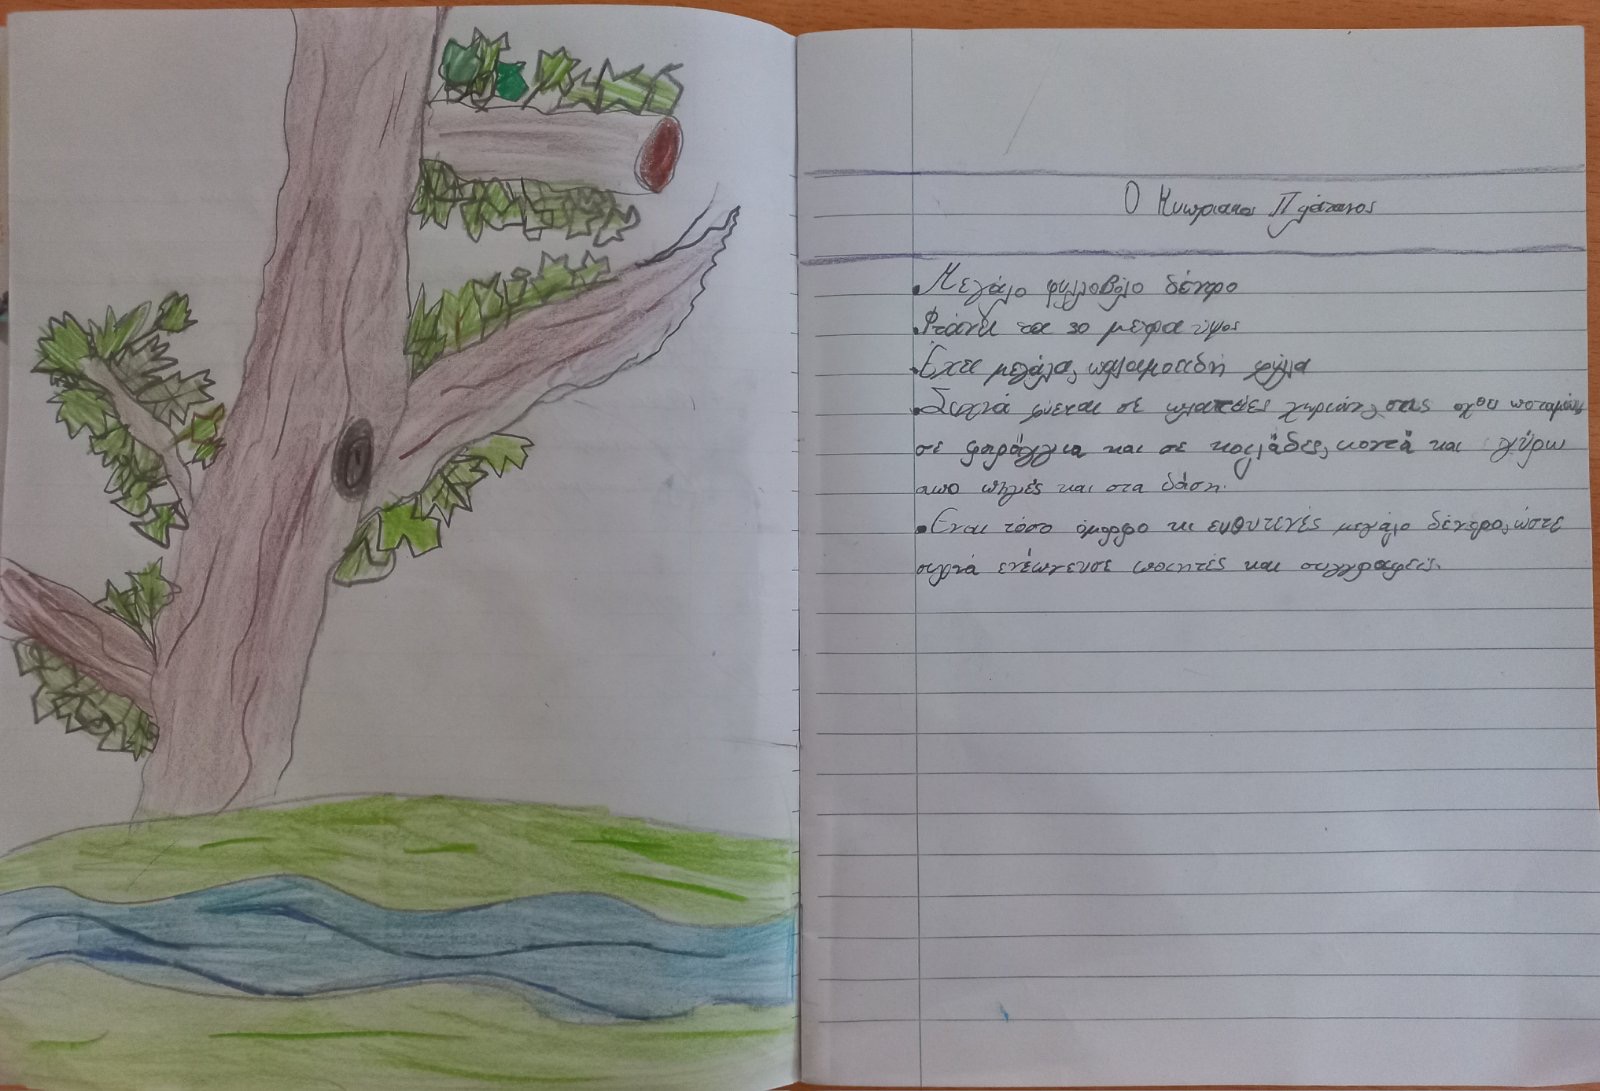 Ο Κυπριακος Πλάτανος
• Μεγάλο φυλλοβόλο δέντρο
• Φτάνει τα 30 μετρα ύψος
• Έχει μεγάλα, παλαμοειδή φύλλα
• Συχνά φύεται σε πλατείες χωριών, στις οχθει ποταμών,
σε φαράγγια και σε κοιλάδες, κοντά και γύρω
απο πηγές και στα δάση.
• Ειναι τόσο όμορφο κι ευθυτενές μεγάλο δέντρο, ώστε
συχνά ενέπνευσε ποιητές και συγγραφείς.